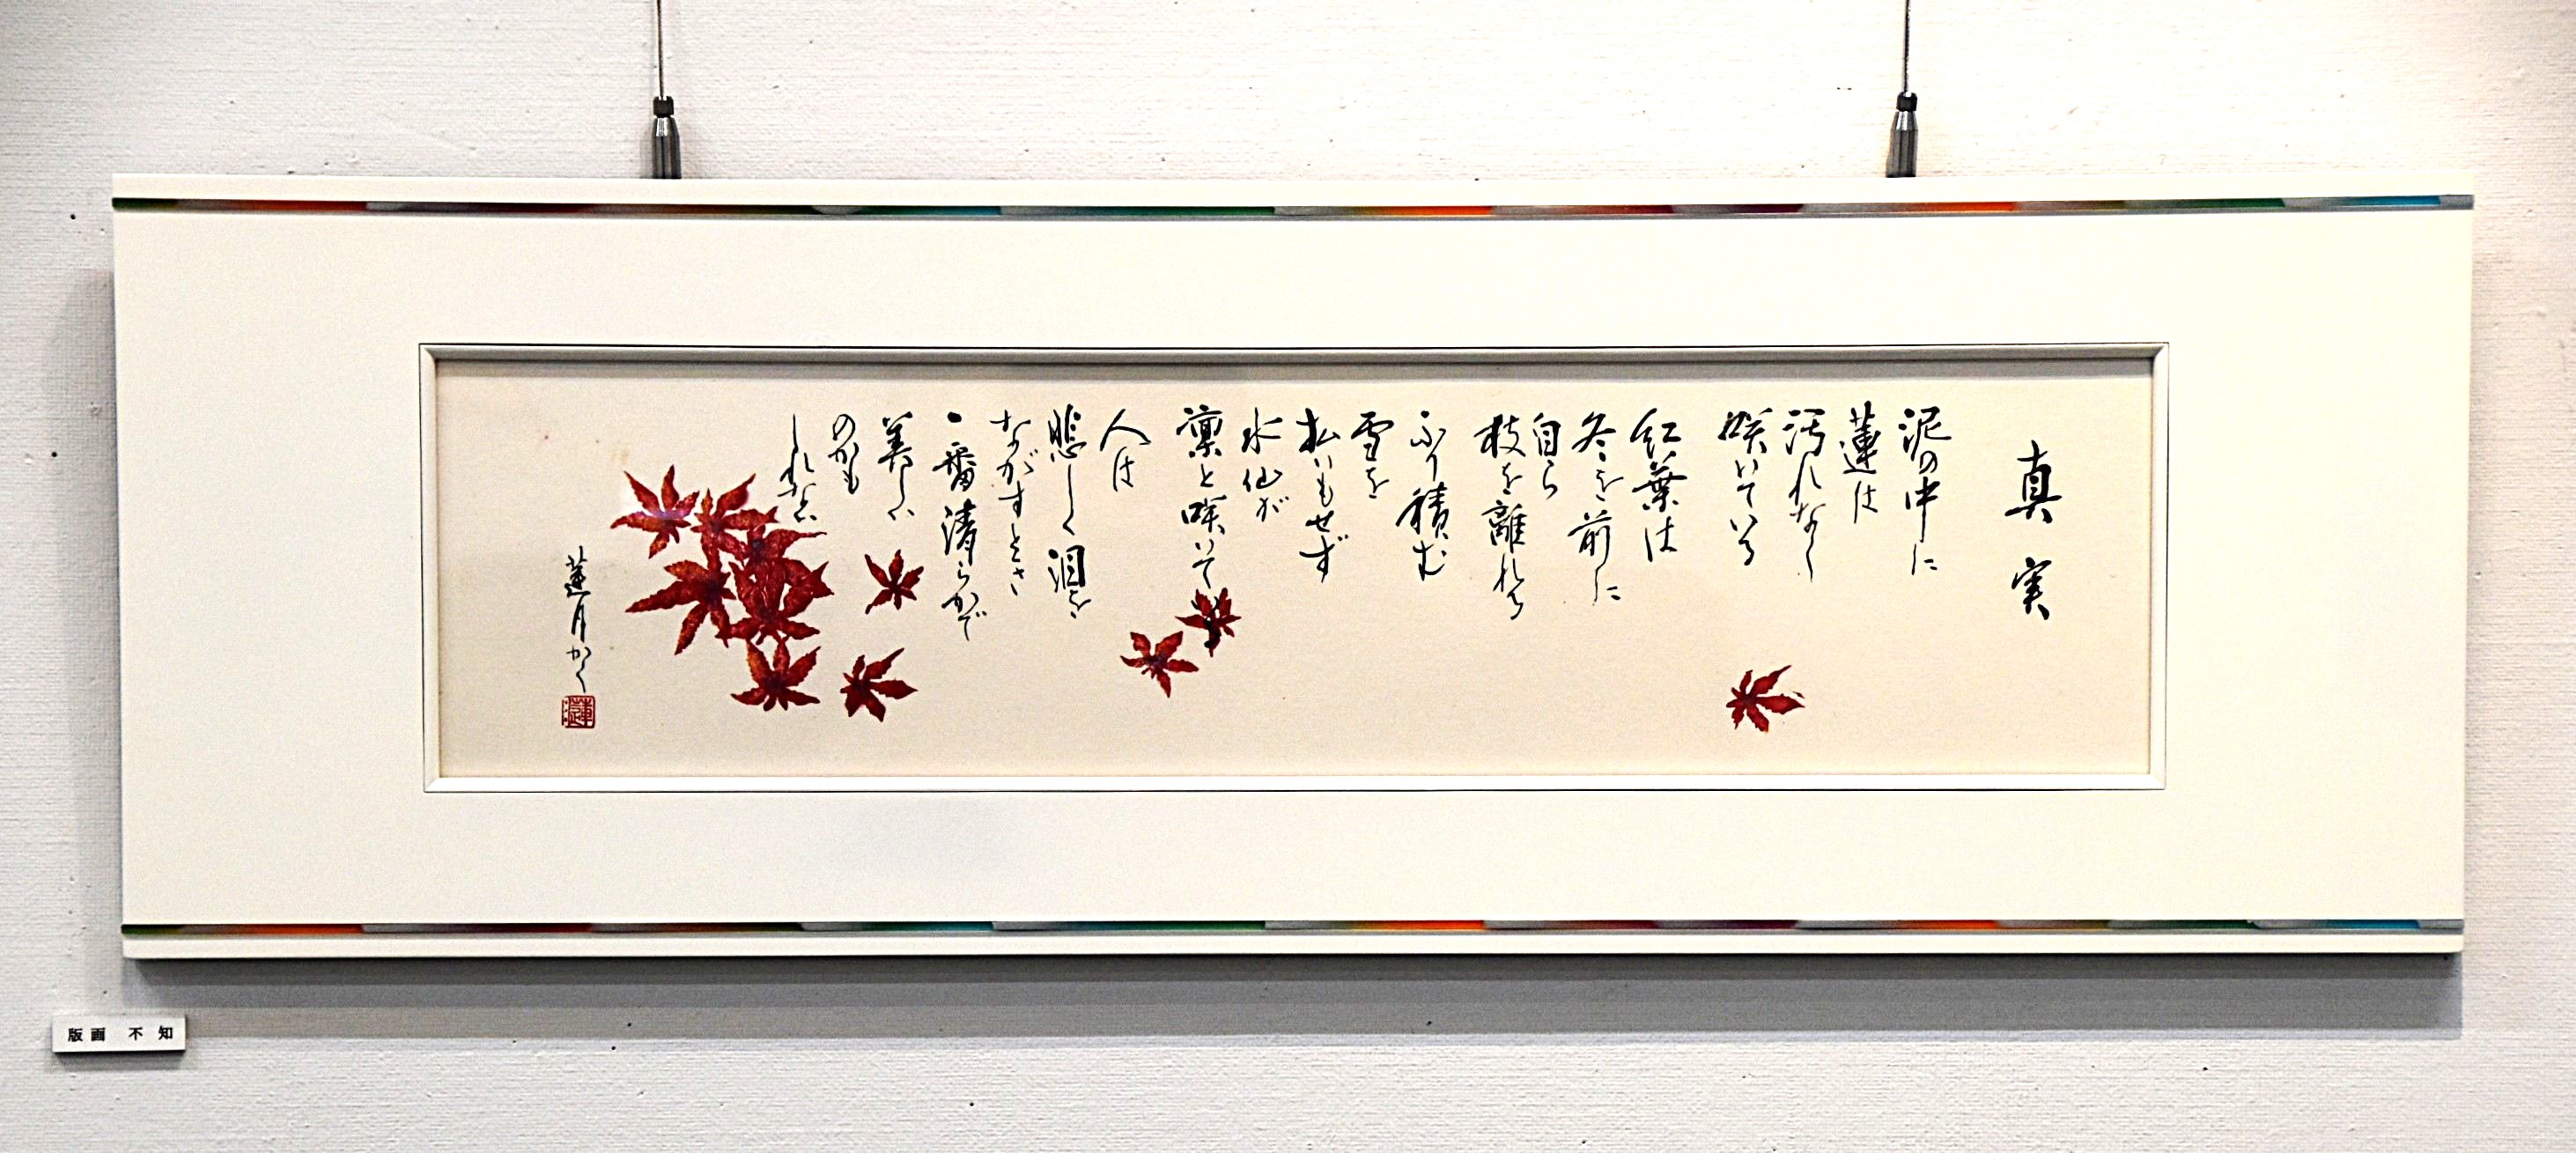 真実
泥の中に
蓮は
汚れなく
咲いている
紅葉は
冬を前に
自ら
枝を離れる
ふり積む
雪を
払いもせず
水仙が
凛と咲いている
人は
悲しく泪を
ながすとき
一番清らかで
美しい
のかも
しれない
蓮月かく
蓮
版画 不知